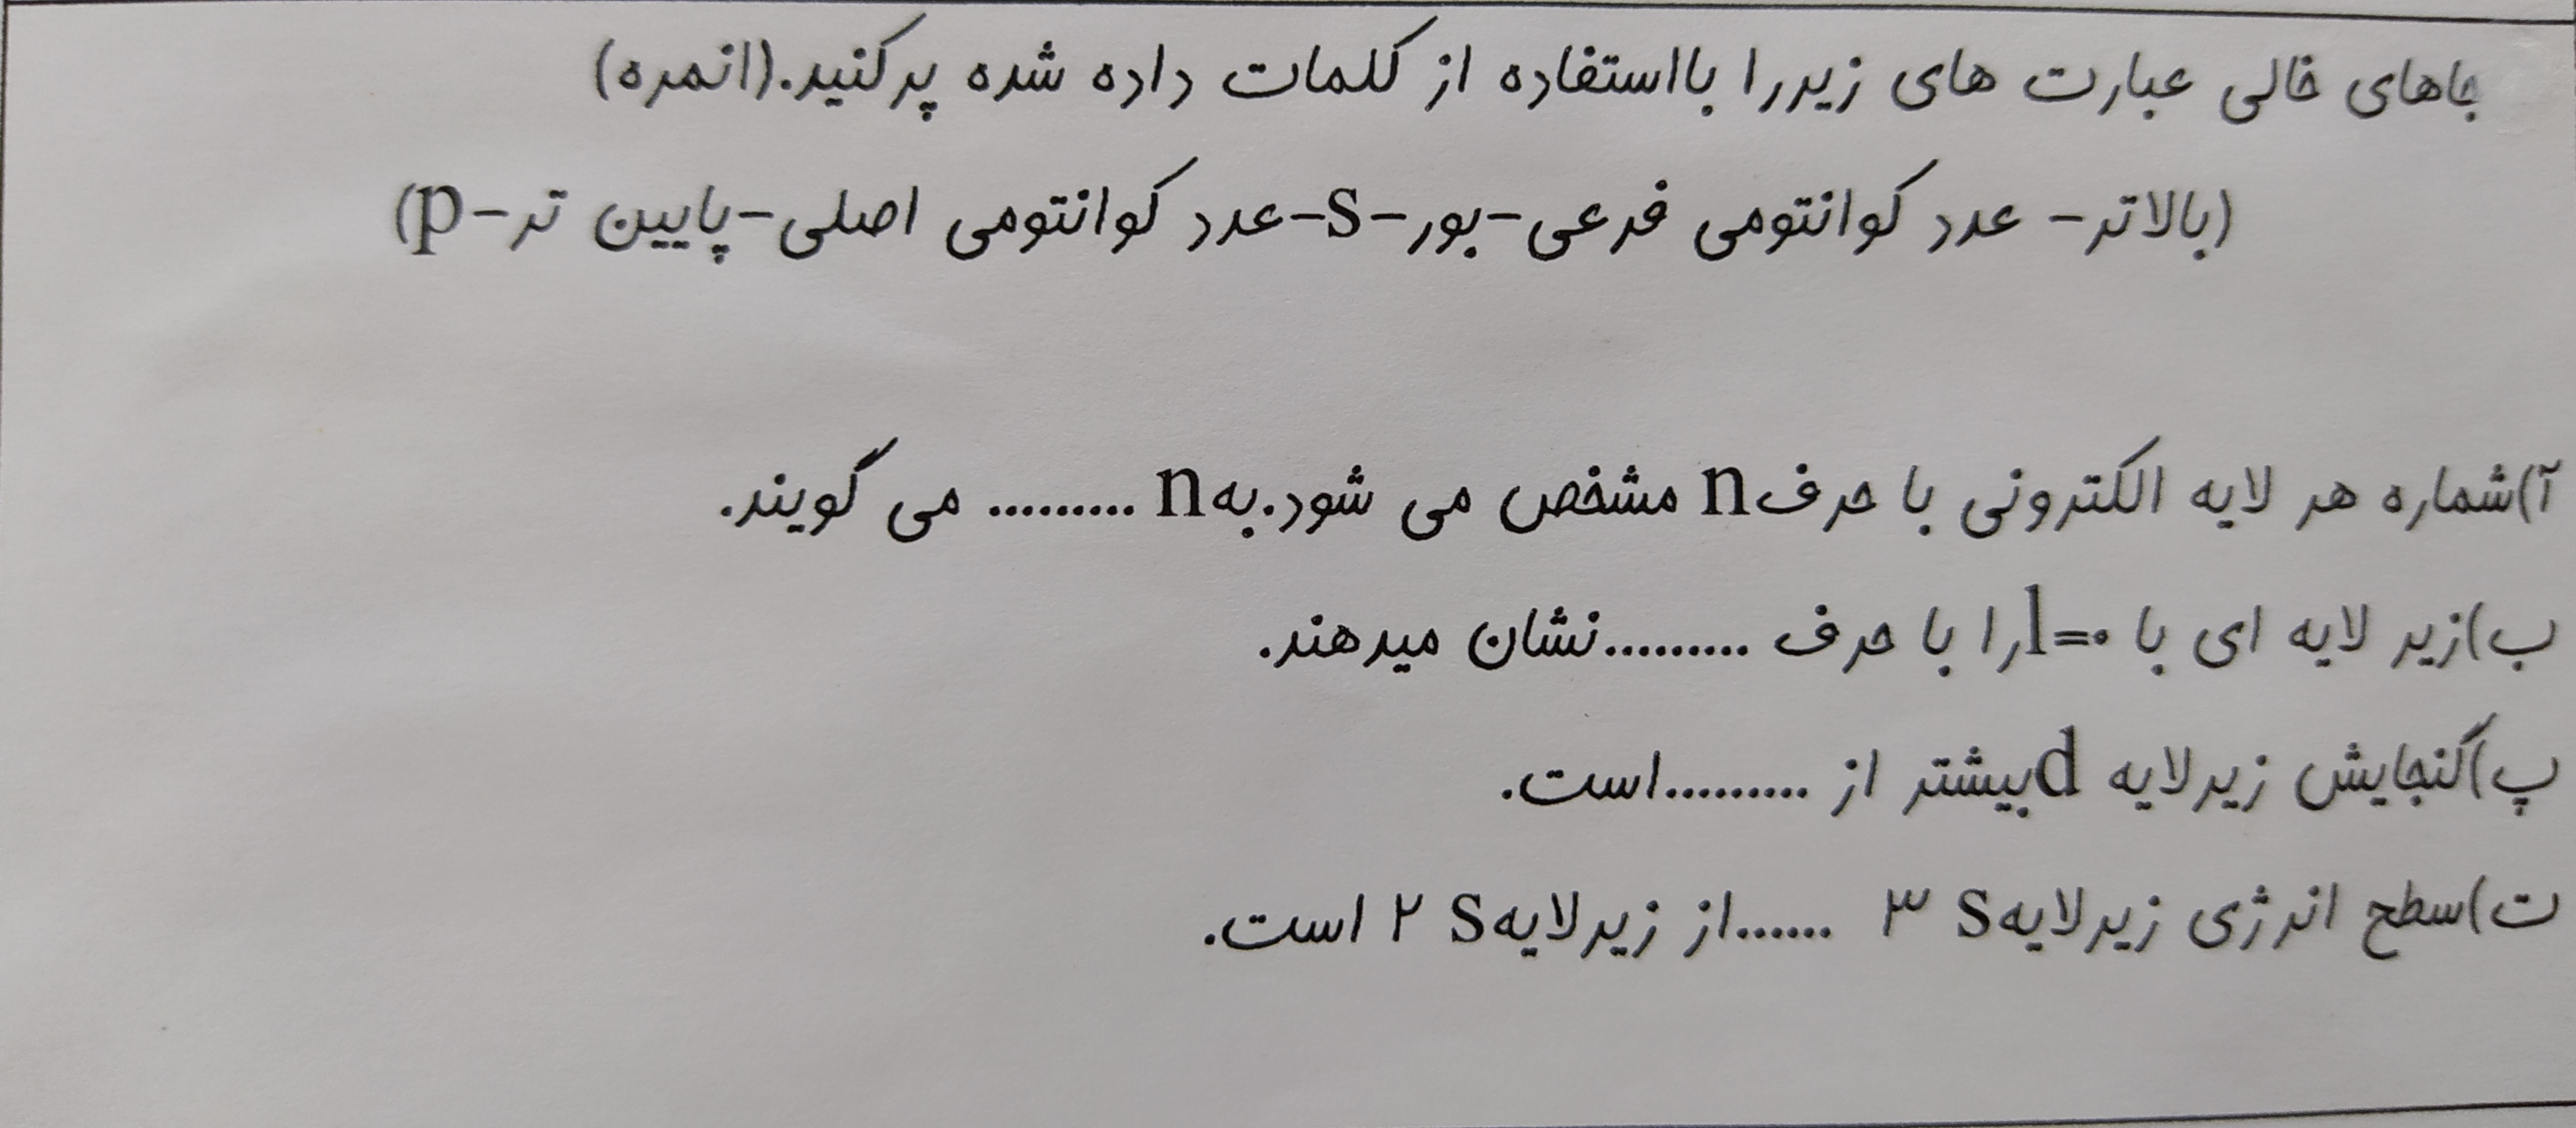 جاهای خالی عبارت های زیررا بااستفاده از کلمات داده شده پرکنید.(۱نمره)
(بالاتر- عدد کوانتومی فرعی-بور-s-عدد کوانتومی اصلی-پایین تر-p)
آ)شماره هر لایه الکترونی با حرفn مشخص می شود.بهn ......... می گویند.
ب)زیر لایه ای با l=۰را با حرف .........نشان میدهند.
پ)گنجایش زیرلایه dبیشتر از .........است.
ت)سطح انرژی زیرلایهs ۳ ......از زیرلایهs ۲ است.